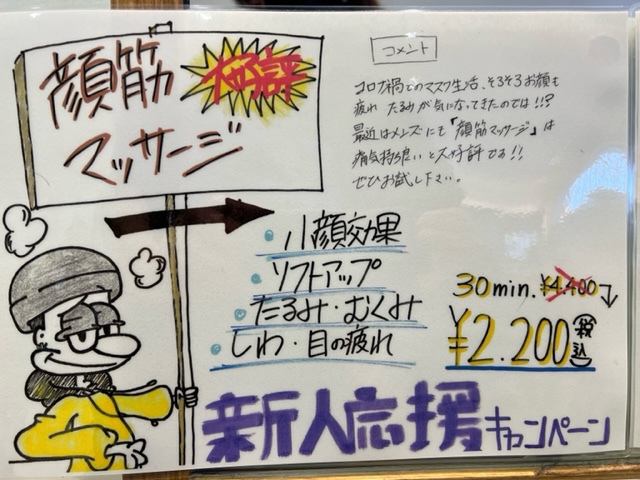 顔筋
大好評
マッサージ
コメント
コロナ禍でのマスク生活、そろそろお顔も
疲れ たるみが気になってきたのでは!!?
最近はメンズにも「顔筋マッサージ」は
痛気持ち良いと大好評です!!
ぜひお試し下さい。
・小顔効果
・ソフトアップ
・たるみ・むくみ
・しわ・目の疲れ
30min. ¥4.400
¥2.200 税込
新人応援キャンペーン